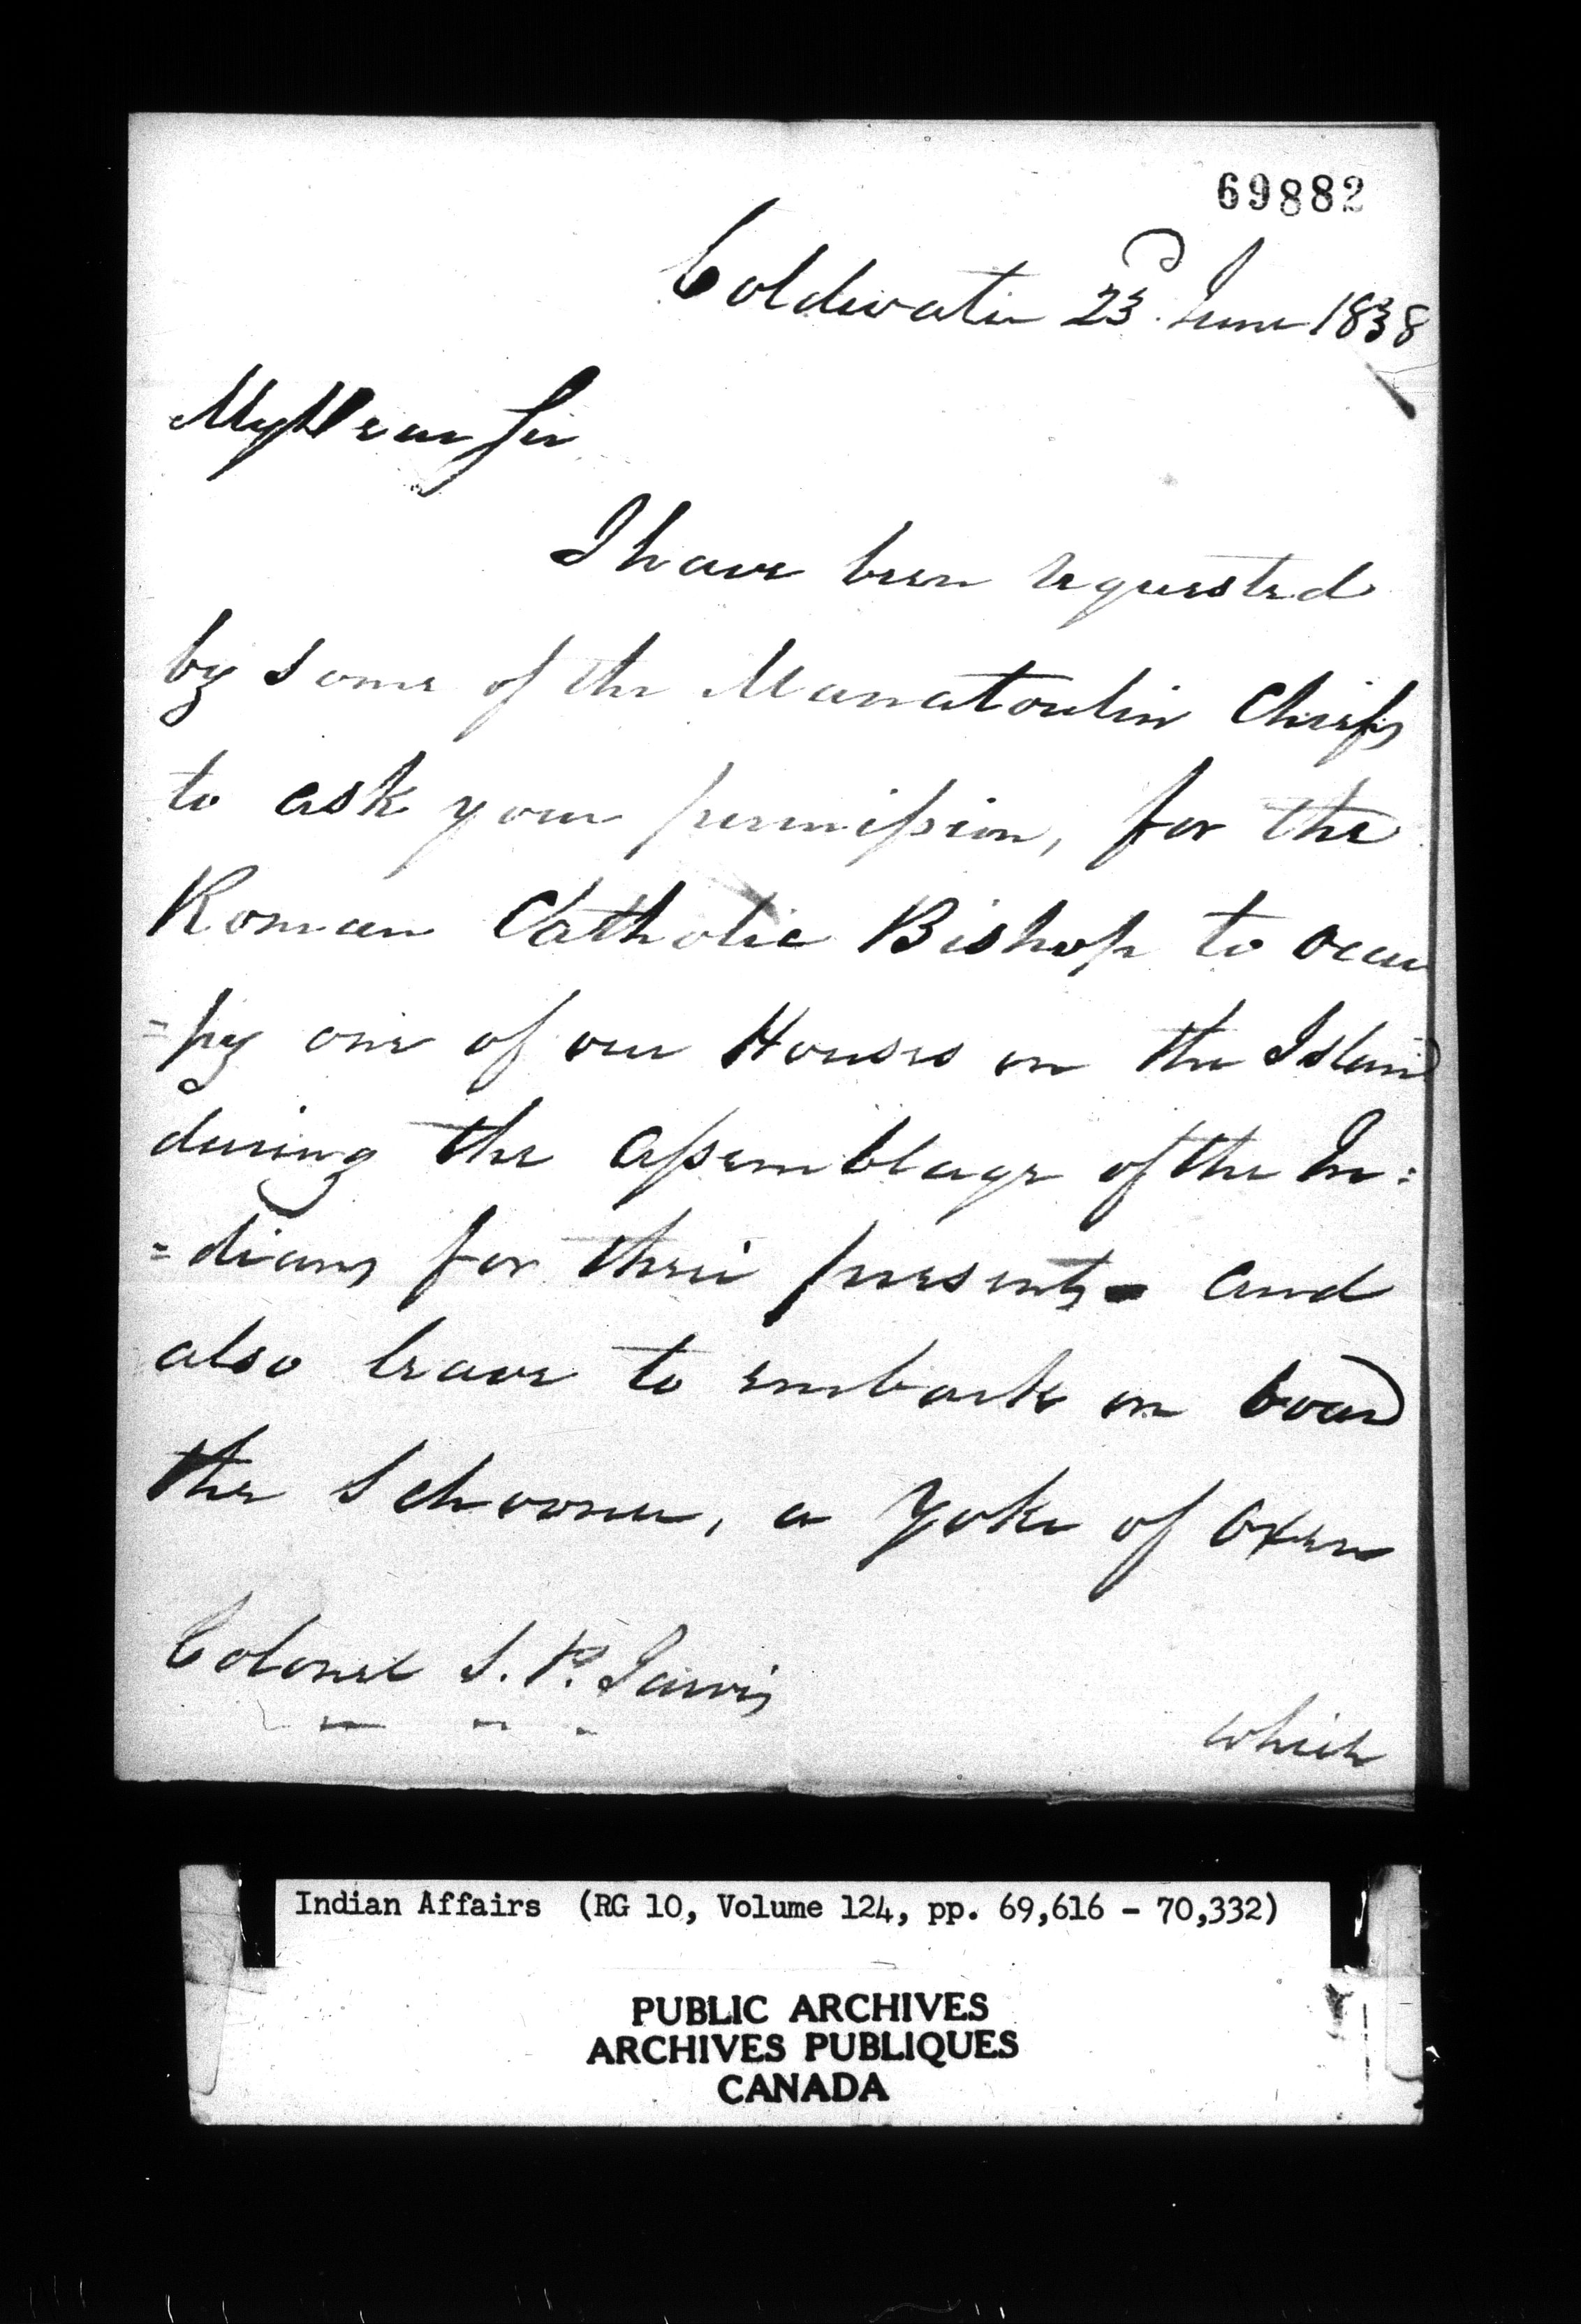 69882
Coldwater 23d June 1838
My Dear Sir
I have been requested
by some of the Manatoulin Chiefs
to ask your permission, for the
Roman Catholic Bishop to occu
=py one of our Houses on the Island
during the assemblage of the In=
=dians for their presents - and
also leave to embark on board
the Schooner, a Yoke of Oxen
Colonel S. P. Jarvis
which
Indian Affairs (RG 10, Volume 124, pp. 69,616 - 70,332)
PUBLIC ARCHIVES
ARCHIVES PUBLIQUES
CANADA